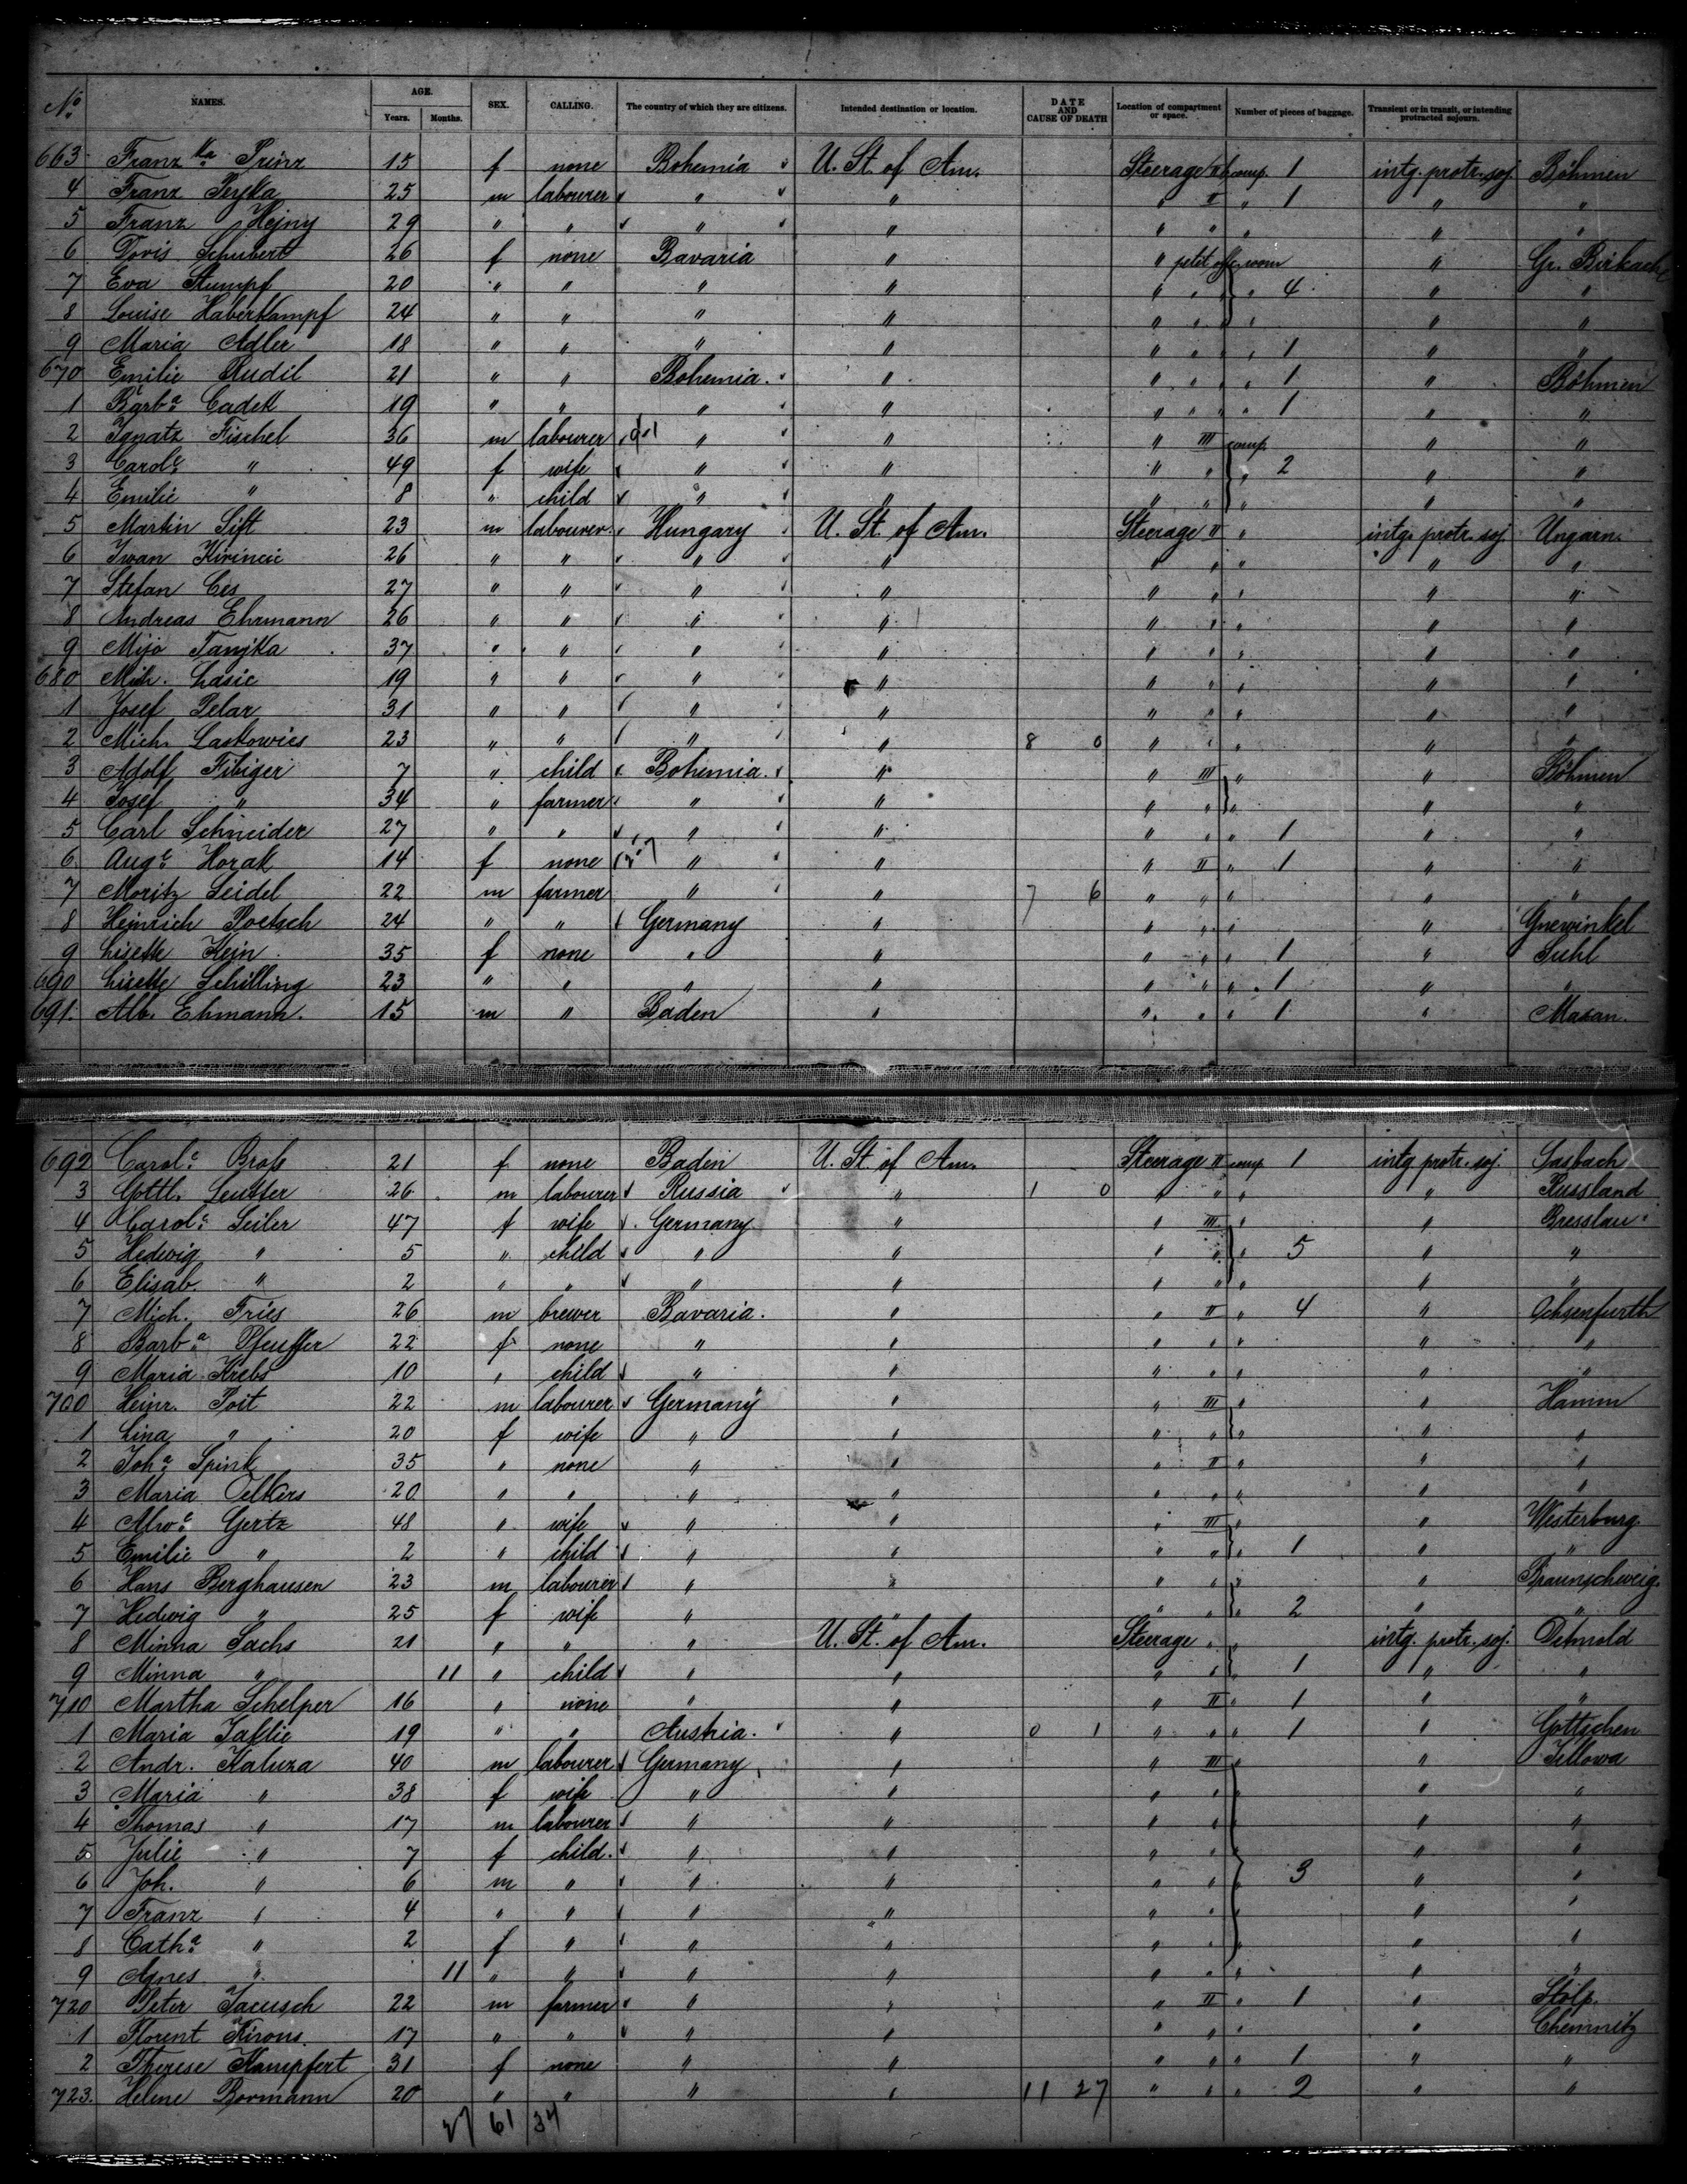 No. NAMES. AGE. Years. Months. SEX. CALLING. The country of which they are citizens. Intended destination or location. DATE AND CAUSE OF DEATH Location of compartment or space. Number of pieces of baggage. Transient or in transit, or intending protracted sojourn.
663 Franz ka Prinz 15 f none Bohemia U. St. of Am. Steerage II comp. 1 intg. protr. soj. Böhmen
4 Franz 25 m labourer " " " II " 1 " "
5 Franz Hejny 29 " " " " " " " " "
6 Doris Schubert 26 f none Bavaria " " petit off. room " Gr. Birkach
7 Eva Stumpf 20 " " " " " " " 4 " "
8 Louise Haberkampf 24 " " " " " " " " "
9 Maria Adler 18 " " " " " " " 1 " "
670 Emilie Rudil 21 " " Bohemia. " " " " 1 " Böhmen
1 Barba Cadek 19 " " " " " " " 1 " "
2 Ignatz Fischel 36 m labourer " " " III comp. " "
3 Carole " 49 f wife " " " " " 2 " "
4 Emilie " 8 " child " " " " " " "
5 Martin Sift 23 m labourer Hungary U. St. of Am. Steerage II " intg. protr. soj. Ungarn.
6 Iwan Kirincic 26 " " " " " " " " "
7 Stefan Ces 27 " " " " " " " " "
8 Andreas Ehrmann 26 " " " " " " " " "
9 Mijo Tanjka 37 " " " " " " " " "
680 Mih. Lasic 19 " " " " " " " " "
1 Josef Pelar 31 " " " " " " " " "
2 Mich. Laskowics 23 " " " " 8 0 " " " " "
3 Adolf Fibiger 7 " child Bohemia. " " III " " Böhmen
4 Josef " 34 " farmer " " " " " " "
5 Carl Schneider 27 " " " " " " " 1 " "
6 Auge Horak 14 f none " " " II " 1 " "
7 Moritz Seidel 22 m farmer " " 7 6 " " " " "
8 Heinrich Poetsch 24 " " Germany " " " " " Gnewinkel
9 Lisette Hein 35 f none " " " " " 1 " Suhl
690 Lisette Schilling 23 " " " " " " " 1 " "
691. Alb. Ehmann. 15 m " Baden " " " " 1 "
692 Carole Bross 21 f none Baden U. St. of Am. Steerage II comp. 1 intg. protr. soj. Sasbach
3 Gottl. 26 m labourer Russia " 1 0 " " " " Russland
4 Carole Seiler 47 f wife Germany " " III " " Bresslau
5 Hedwig " 5 " child " " " " " 5 " "
6 Elisab. " 2 " " " " " " " " "
7 Mich. Fries 26 m brewer Bavaria. " " II " 4 " Ochsenfurth
8 Barba Pfeuffer 22 f none " " " " " " "
9 Maria Krebs 10 " child " " " " " " "
700 Heinr. Poit 22 m labourer Germany " " III " " Hamm
1 Lina " 20 f wife " " " " " " "
2 Joha Spink 35 " none " " " II " " "
3 Maria Oelkers 20 " " " " " " " " "
4 Alwe Gertz 48 " wife " " " III " " Westerburg.
5 Emilie " 2 " child " " " " " 1 " "
6 Hans Berghausen 23 m labourer " " " " " " Braunschweig.
7 Hedwig " 25 f wife " " " " " 2 " "
8 Minna Sachs 21 " " " U. St. of Am. Steerage " " intg. protr. soj. Detmold
9 Minna " 11 " child " " " " " 1 " "
710 Martha Schelper 16 " none " " " II " 1 " "
1 Maria Jaklic 19 " " Austria. " 0 1 " " " 1 " Gottschen
2 Andr. Kaluza 40 m labourer Germany " " III " " Jellowa
3 Maria " 38 f wife " " " " " " "
4 Thomas " 17 m labourer " " " " " " "
5 Julie " 7 f child " " " " " " "
6 Joh. " 6 m " " " " " " 3 " "
7 Franz " 4 " " " " " " " " "
8 Catha " 2 f " " " " " " " "
9 Agnes " 11 " " " " " " " " "
720 Peter Jacusch 22 m farmer " " " II " 1 " Stolp.
1 Florent Kirons 17 " " " " " " " " Chemnitz
2 Therese Kampfert 31 f none " " " " " 1 " "
723. Helene Bormann 20 " " " " 11 27 " " " 2 " "
27 61 34